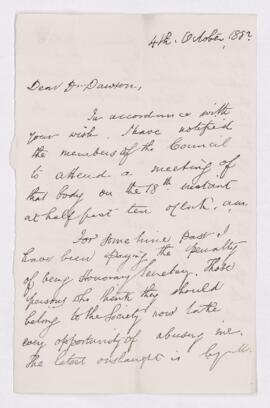 4th. October, 1882
Dear Dr Dawson,
In accordance with
your wish I have notified
the members of the Council
to attend a meeting of
that body on the 18th instant
at half past ten o'clock a.m.
For some time past I
have been paying the penalty
of being Honorary Secretary. Those
persons who think they should
belong to the Society now take
every opportunity of abusing me.
The latest onslaught is by